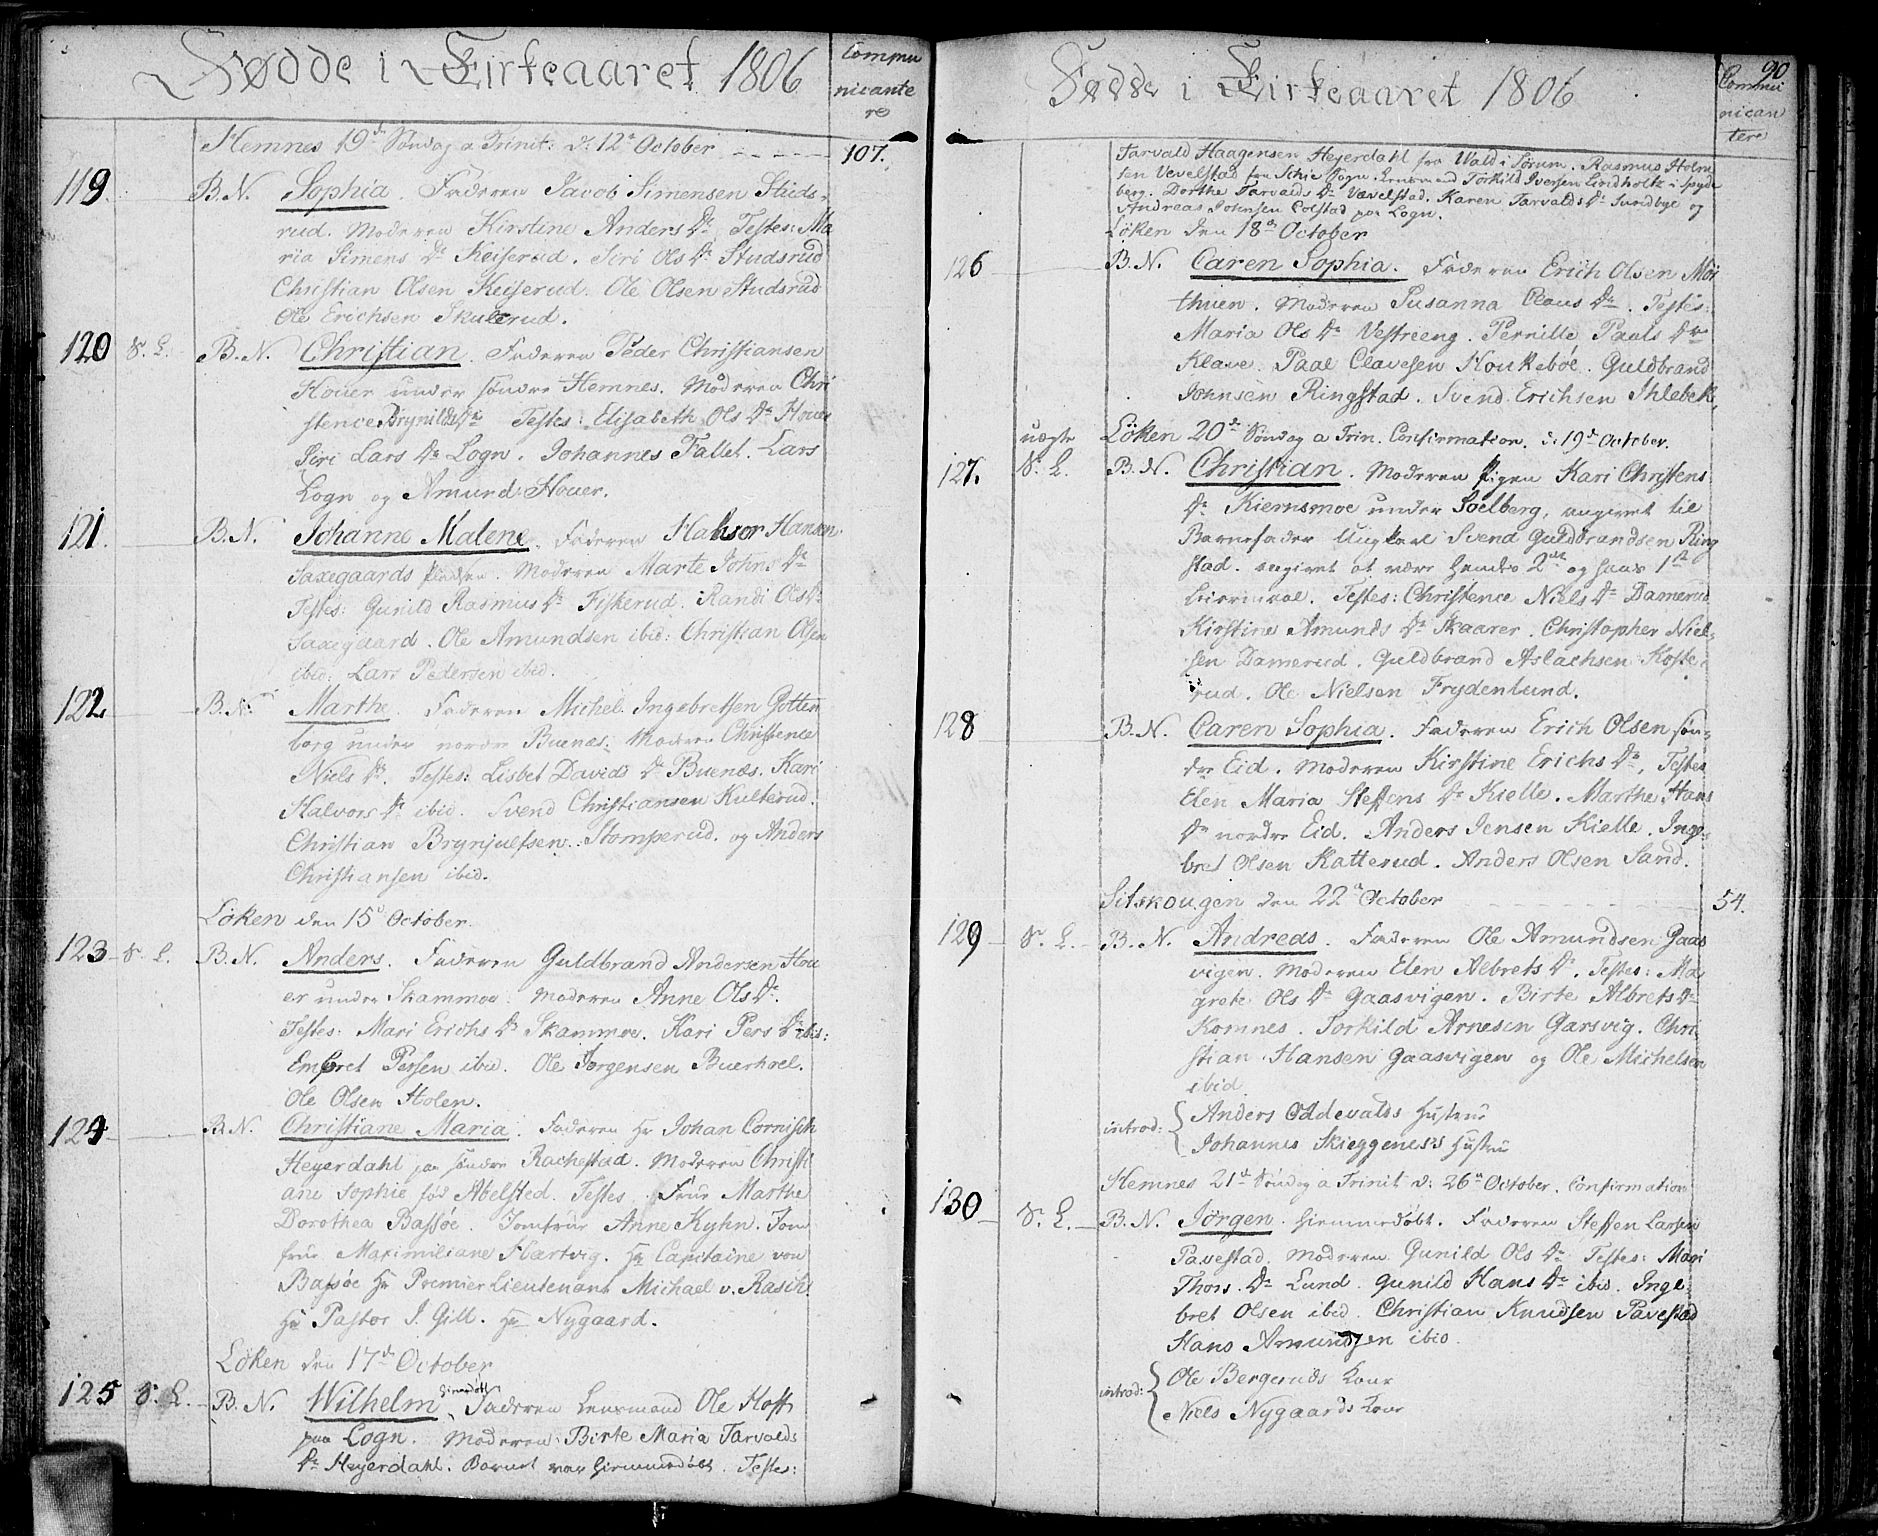 Fødde i Kirkeaaret 1806
Commu
nicante
re
Hemnes 19de Søndag a Trinit: d: 12te October 107.
119. B. N. Sophia. Faderen Jacob Simensen Studs-
rud. Moderen Kirstine Anders Dr Testes: Ma
ria Simens Dr Keiserud. Siri Ols Dr Studsrud
Christian Olsen Keiserud. Ole Olsen Studsrud
Ole Erichsen Skulerud.
120 S. L. B. N. Christian. Faderen Peder Christiansen
Houer under søndre Hemnes. Moderen Chri
stence Brynilds Dr Testes: Elisabeth Ols Dr Houer
Siri Lars Dr Logn. Johannes Fallet. Lars
Logn og Amund Houer.
121. B. N. Johanne Malene. Faderen Halvor Hansen
Saxegaards pladsen. Moderen Marte Johns Dr
Testes: Gunild Rasmus Dr Fiskerud. Randi Ols Dr
Saxegaard. Ole Amundsen ibid: Christian Olsen
ibid: Lars Pedersen ibid.
122 B. N. Marthe. Faderen Michel Ingebretsen Gotten
borg under nordre Buenes: Moder Christence
Niels Dr. Testes: Lisbet Davids Dr Buenes. Kari
Halvors Dr ibid. Svend Christiansen Kulterud.
Christian Brynjulfsen Stomperud. og Anders
Christiansen ibid.
Løken den 15de October
123 S. L. B. N. Anders. Faderen Guldbrand Andersen Hou
er under Skammoe. Moderen Anne Ols Dr.
Testes: Mari Erichs Dr Skammoe. Kari Pers Dr ibid:
Embret Persen ibid. Ole Jørgensen Buerhoel.
Ole Olsen Holen.
124 B. N. Christiane Maria. Faderen Hr Johan Cornisch
Heyerdahl paa søndre Rachestad. Moderen Christi
ane Sophie fød Abelsted. Testes Frue Marthe
Dorothea Bassøe. Jomfrue Anne Kyhn. Jom
frue Maximiliane Hartvig. Hr Capitaine von
Bassøe Hr Premier Lieutenant Michael v. Rasch
Hr Pastor J. Gill. Hr Nygaard.
Løken den 17de October
125 S. L. B. N. Wilhelm Faderen Lensmand Ole Hoff
paa Logn. Moderen Birte Maria Tarvalds
Dr Heyerdahl. Barnet var hiemmedøbt. Testes:
90
Fødde i Kirkeaaret 1806
Commu
nican
ter
Tarvald Haagensen Heyerdahl fra Wald i Sørum. Rasmus Holm
sen Vevelstad fra Schie Sogn. Lensmand Torkild Iversen Lindholtz i Spyde
berg. Dorthe Tarvalds Dr Vævelstad. Karen Tarvalds Dr Sundbye og
Andreas Johnsen Colstad paa Logn.
Løken den 18de October
126 B. N. Caren Sophia. Faderen Erich Olsen Mor
thuen. Moderen Susanna Claus Dr. Testes:
Maria Ols Dr Vestreeng. Pernille Pauls Dr
Klave. Paal Clavesen Houkebøe. Guldbrand
Johnsen Ringstad. Svend Erichsen Ihlebek.
Løken 20de Søndag a Trin. Confirmation. d: 19de October.
uægte
127. S. L. B. N. Christian. Moderen Pigen Kari Christens
Dr Kiernsmoe under Soelberg, angivet til
Barnefader Ungkarl Svend Guldbrandsen Ring
stad. angivet at være hendes 2det og hans 1ste
Leiermaal. Testes: Christence Niels Dr Damerud
Kirstine Amunds Dr Skaarer. Christopher Niel-
sen Damerud. Guldbrand Aslachsen Koste-
rud. Ole Nielsen Frydenlund.
128 B. N. Caren Sophia. Faderen Erich Olsen søn-
dre Eid. Moderen Kirstine Erichs Dr. Testes
Elen Maria Steffens Dr Kielle. Marthe Hans
Dr nordre Eid. Anders Jensen Kielle. Inge-
bret Olsen Katterud. Anders Olsen Sand.
Sitskougen den 22de October 54.
129 S. L. B. N. Andreas. Faderen Ole Amundsen Gaas
vigen. Moderen Elen Albrets Dr. Testes: Ma
grete Ols Dr Gaasvigen. Birte Albrets Dr
Komnes. Torkild Arnesen Garsvig. Chri
stian Hansen Gaasvigen og Ole Michelsen
ibid
introd: Anders Oddevalds Hustrue
Johannes Skieggenes's Hustru
Hemnes 21de Søndag a Trinit d: 26de October. Confirmation
130 S. L. B. N. Jørgen. hiemmedøbt. Faderen Steffen Larsen
Pavestad. Moderen Gunild Ols Dr Testes: Mari
Thors. Dr Lund. Gunild Hans Dr ibid. Inge-
bret Olsen ibid. Christian Knudsen Pavestad
Hans Amundsen ibid.
introd: Ole Bergeruds Kone
Niels Nygaards Kone